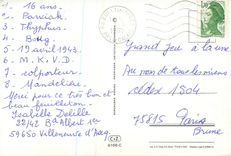 1. 16 ans.
2. Parsiak.
3. Thyphus.
4. Borg.
5. 19 avril 1943.
6. M.K.V.D.
7. colporteur.
8. Mandelieu.
Merci pour ce très bon et
beau feuilleton.
Isabelle Delille
22/42 Bd Albert 1er
59650 Villeneuve d'Ascq.
Grand jeu à la une
Au nom de tous les miens
cedex 1504
75815 Paris
Brune